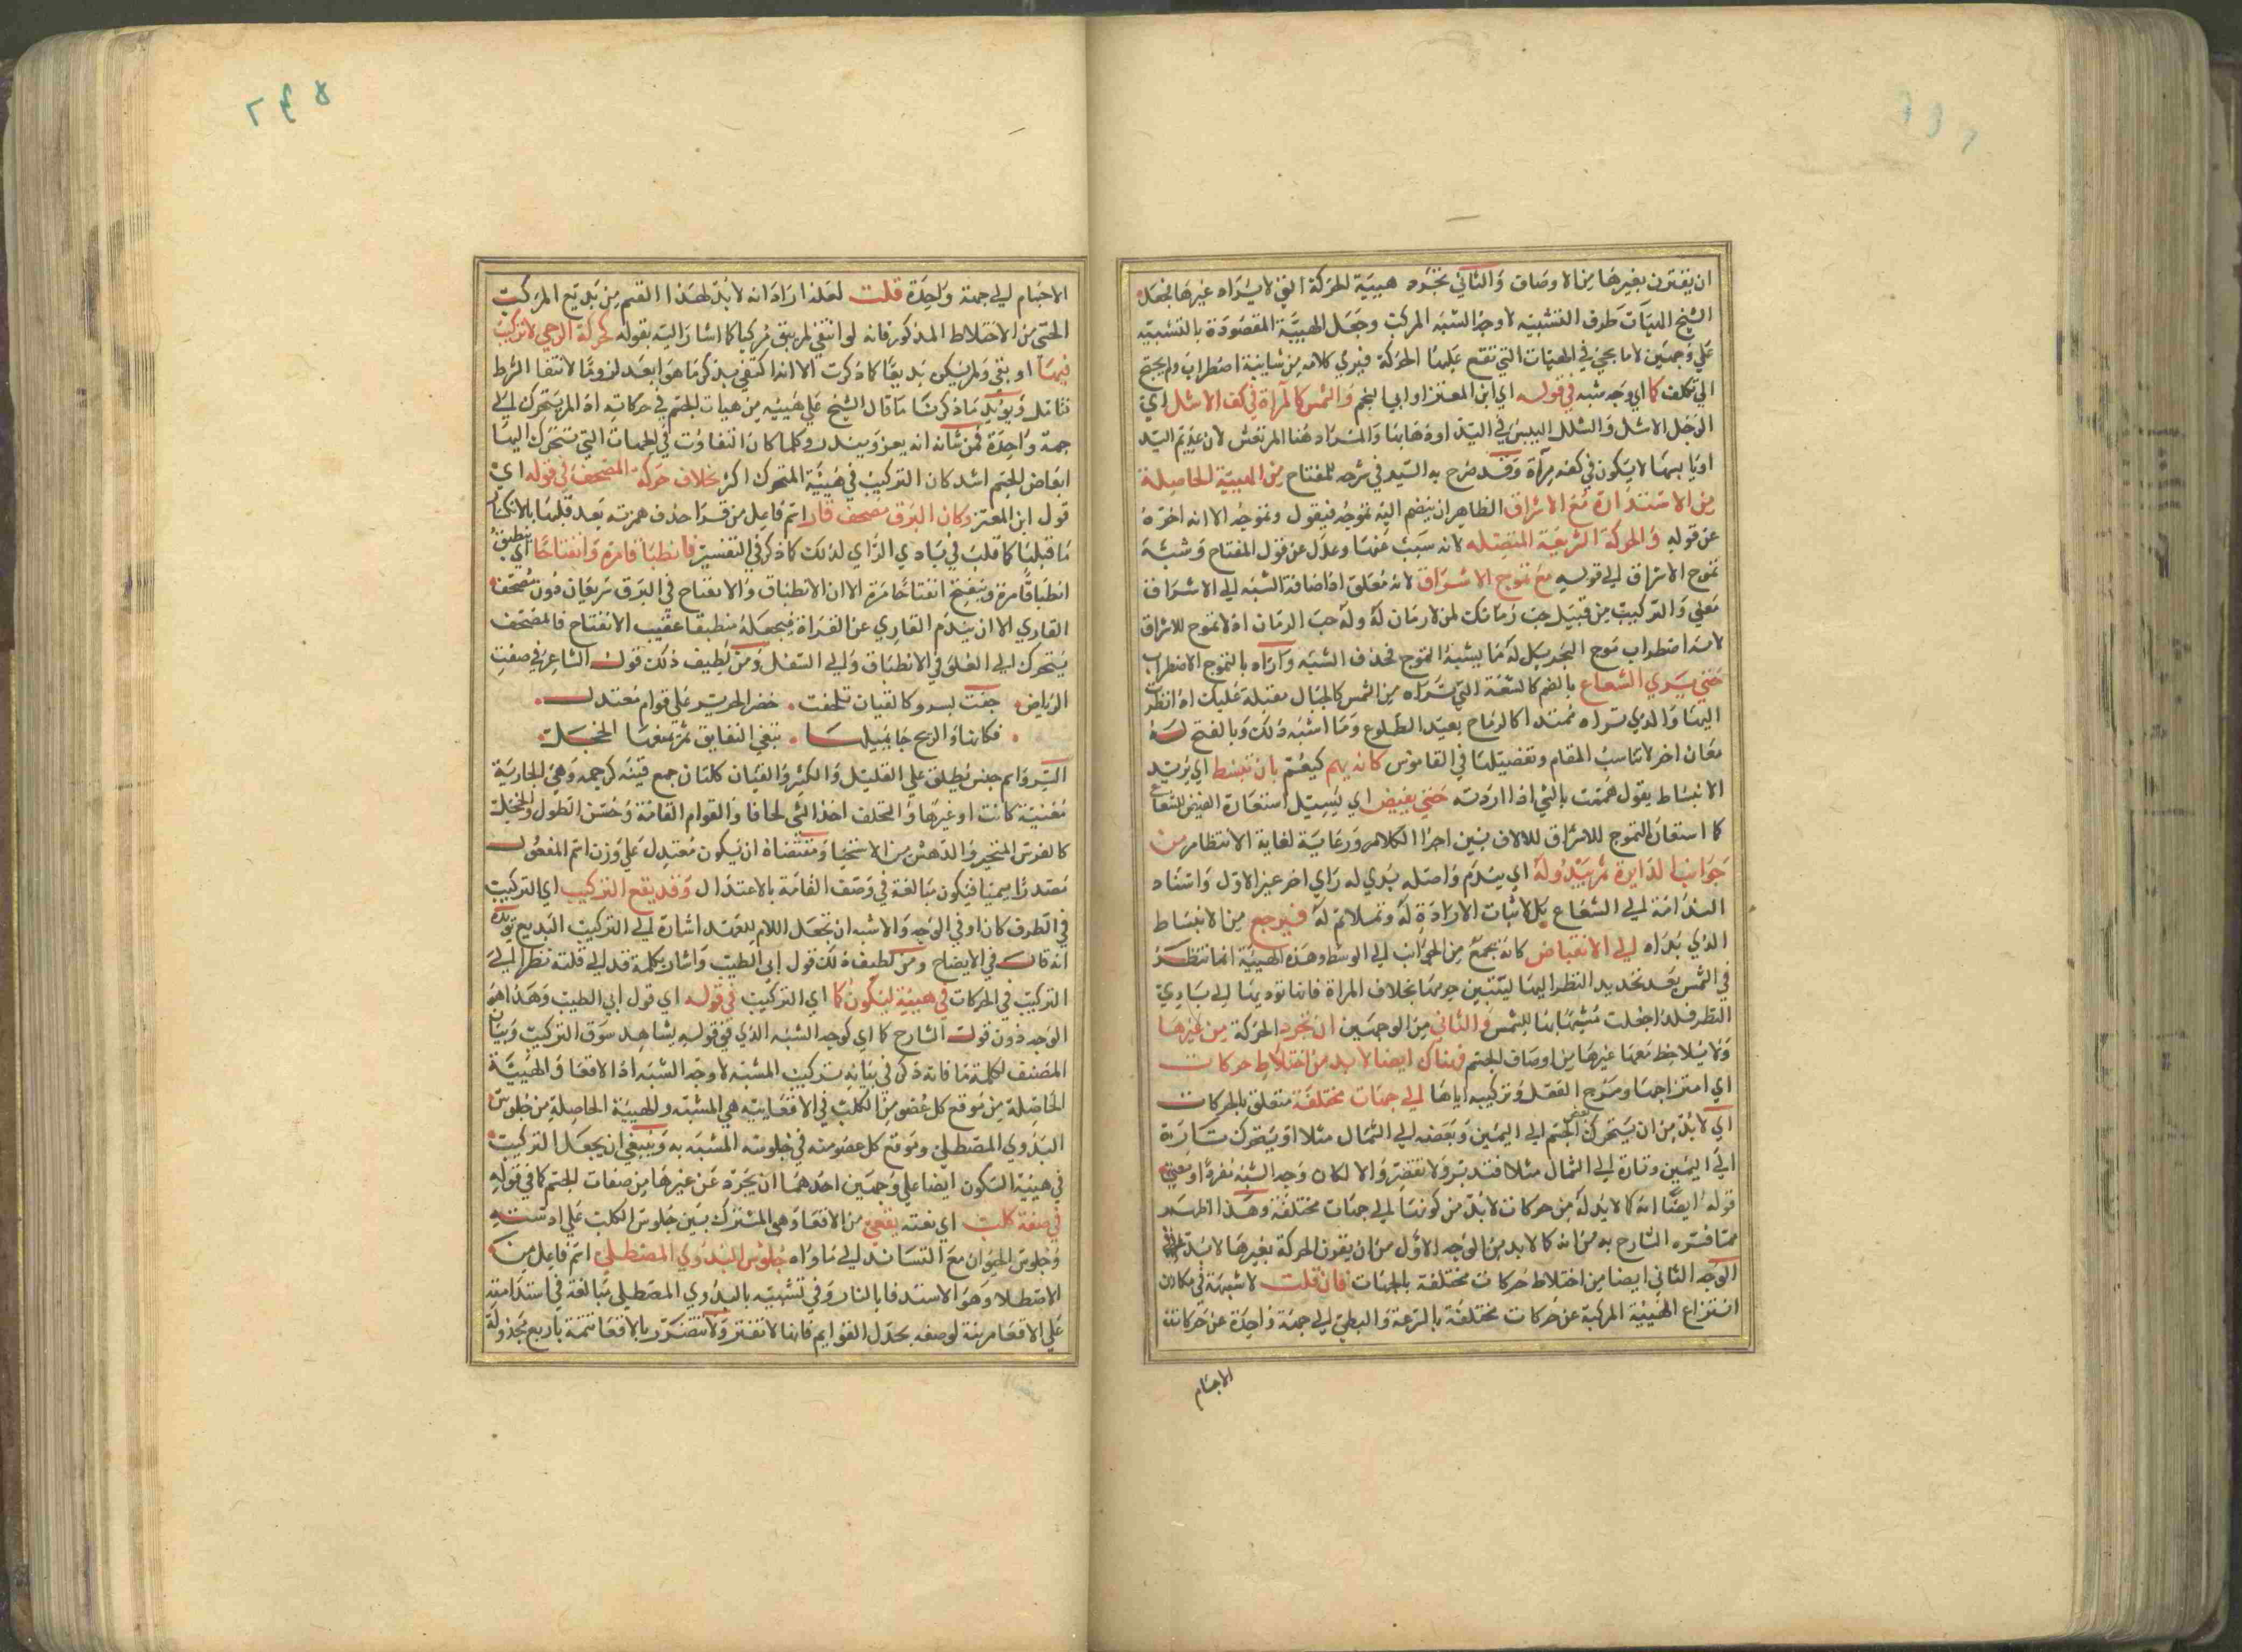 ان يقترن بغيرها من الاوصاف والثاني تجرد هيية الحركة التي لا يراد غيرها فجعل
الشيخ الهيآت طرف التشبيه لا وجه الشبه المركب وجعل الهيية المقصودة بالتشبيه
علي وجهين لا ما يجئ في الهيات التي تقع عليها الحركة فيري كلامه من شايبة اضطراب ولم يحتج
الي تكلف كما اي وجه شبه في قوله اي ابن المعتز او ابي النجم والشمس كالمرآة في كف الاشل اي
الرجل الاشل والشلل اليبس في اليد او ذهابها والمراد هنا المرتعش لان عديم اليد
او يابسها لا يكون في كفه مرآة وقد صرح به السيد في شرحه للمفتاح من الهيية الحاصلة
من الاستدارة مع الاشراق الظاهر ان ينضم اليه تموجه فيقول وتموجه الا انه اخره
عن قوله والحركة السريعة المتصلة لانه سبب عنها وعدل عن قول المفتاح وشبه
تموج الاشراق الي قوله مع تموج الاشراق لانه مغلق اذ اضافة الشبه الي الاشراق
معني والتركيب من قبيل حب رمانك لمن لا رمان له وله حب الرمان اذ لا تموج للاشراق
لانه اضطراب موج البحر بل له ما يشبه التموج فحذف الشبه واراد بالتموج الاضطراب
حتي يري الشعاع بالضم كالشعة التي تراه من الشمس كالحبال مقبلة عليك اذا نظرت
اليها والذي تراه ممتدا كالرماح بعيد الطلوع وما اشبه ذلك وبالفتح له
معان اخر لا تناسب المقام وتفصيلها في القاموس كانه يهم كيعم بان ينبسط اي يريد
الانبساط يقول هممت بالشي اذا اردته حتي يفيض اي يسيل استعارة الفيض للشعاع
كما استعار التموج للاشراق للالاف بين اجزا الكلام ورعاية لغاية الانتظام من
جوانب الدايرة ثم يبدو له اي يندم واصله بدي له راي اخر غير الاول واسناد
الندامة الي الشعاع بل لاثبات الارادة له وتملايم له فيرجع من الانبساط
الذي بداه الي الانقباض كانه يجمع من الجوانب الي الوسط وهذه الهيية انما تنظر
في الشمس بعد تحديد النظر اليها ليتبين جرمها بخلاف المراة فانها توديها الي بادي
النظر فلذا جعلت مشبها بها للشمس والثاني من الوجهين ان تجرد الحركة من غيرها
ولا يلاحظ معها غيرها من اوصاف الجسم فهناك ايضا لا بد من اختلاط حركات
اي امتزاجها ومزج العقل وتركيبه اياها الي جهات مختلفة متعلق بالحركات
اي لا بد من ان يتحرك بعض الجسم الي اليمين وبعضه الي الشمال مثلا او يتحرك تارة
الي اليمين وتارة الي الشمال مثلا فتدبر ولا تقصر والا لكان وجه الشبه مفردا ومعني
قوله ايضا انه كما لا بد له من حركات لا بد من كونها الي جهات مختلفة وهذا اظهر
مما فسره الشارح به من انه كما لا بد من الوجه الاول من ان يقرن الحركة بغيرها لا بد في
الوجه الثاني ايضا من اختلاط حركات مختلفة بالجهات فان قلت لا شبهة في مكان
انتزاع الهيية المركبة عن حركات مختلفة بالسرعة والبطئ الي جهة واحدة عن حركات
الاجسام
٢٤٥
الاجسام الي جهة واحدة قلت لعله اراد انه لا بد لهذا القسم من بديع المركب
الحسي من الاختلاط المذكور فانه لو انتفي لم يبق مركبا كما اشار اليه بقوله كحركة الرحي لا تركيب
فيها او بقي ولم يكن بديعا كما ذكرت الا انه اكتفي بذكر ما هو ابعد لزوما لانتفا الشرط
تتامل ويؤيد ما ذكرنا ما قال الشيخ علي هيية من هيات الجسم في حركاته اذا لم يتحرك الي
جهة واحدة فمن شانه انه يعز ويندر وكلما كان التفاوت في الجهات التي تتحرك اليها
ابعاض الجسم اشد كان التركيب في هيية المتحرك اكثر بخلاف حركة المصحف في قوله اي
قول ابن المعتز وكان البرق مصحف قار اسم فاعل من قرا حذف همزته بعد قلبها بالانكسار
ما قبلها كما قلبت في بادي الراي لذلك كما ذكر في التفسير فانطباقا مرة وانفتاحا اي ينطبق
انطباقا مرة وينفتح انفتاحا مرة الا ان الانطباق والانفتاح في البرق سريعان دون مصحف
القاري الا ان يندم القاري عن القراة فيجعله منطبقا عقيب الانفتاح فالمصحف
يتحرك الي العلو في الانطباق والي السفل ومن لطيف ذلك قول الشاعر في صفة
الرياض حفت بسرو كالقيان تلحفت خضر الحرير علي قوام معتدل
فكانها والريح جا يميلها تبغي التعانق ثم يمنعها الخجل
السرو اسم جنس يطلق علي القليل والكثير والقيان ككتان جمع قينة كرحمة وهي الجارية
مغنية كانت او غيرها والتحلف اخذ الشي لحافا والقوام القامة وحسن الطول والخجل
كالفرس المتحير والدهش من الاستحيا ومقتضاه ان يكون معتدل علي وزن اسم المفعول
مصدرا ميميا فيكون مبالغة في وصف القامة بالاعتدال وقد يقع التركيب اي التركيب
في الطرف كان او في الوجه والاشبه ان تجعل اللام للعهد اشارة الي التركيب البديع يؤيده
انه قال في الايضاح ومن لطيف ذلك قول ابي الطيب واشار بكلمة قد الي قلته نظرا الي
التركيب في الحركات في هيية السكون كما اي التركيب في قوله اي قول ابي الطيب وهذا هو
الوجه دون قول الشارح كما اي كوجه الشبه الذي في قوله يشاهد سوق التركيب وبيان
المصنف لكلمة ما فانه ذكر في بيانه تركيب المشبه لا وجه الشبه اذ الاقعا والهيية
الحاصلة من موقع كل عضو من الكلب في الاقعايه هي المشبه والهيية الحاصلة من جلوس
البدوي المصطلي وموقع كل عضو منه في جلوسه المشبه به وينبغي ان يجعل التركيب
في هيية السكون ايضا علي وجهين احدهما ان يجرد عن غيرها من صفات الجسم كما في قوله
في صفة كلب اي نعته يقعي من الاقعا وهي المشترك بين جلوس الكلب علي استه
وجلوس الحيوان مع التساند الي ما وراه جلوس البدوي المصطلي اسم فاعل من
الاصطلا وهو الاستدفا بالنار وفي تشبيهه بالبدوي المصطلي مبالغة في استدامته
علي الاقعا مرتبة لوصفه بجدل القوايم فانها لا تفتر ولا تتضرر بالاقعا تتمة باربع مجدولة